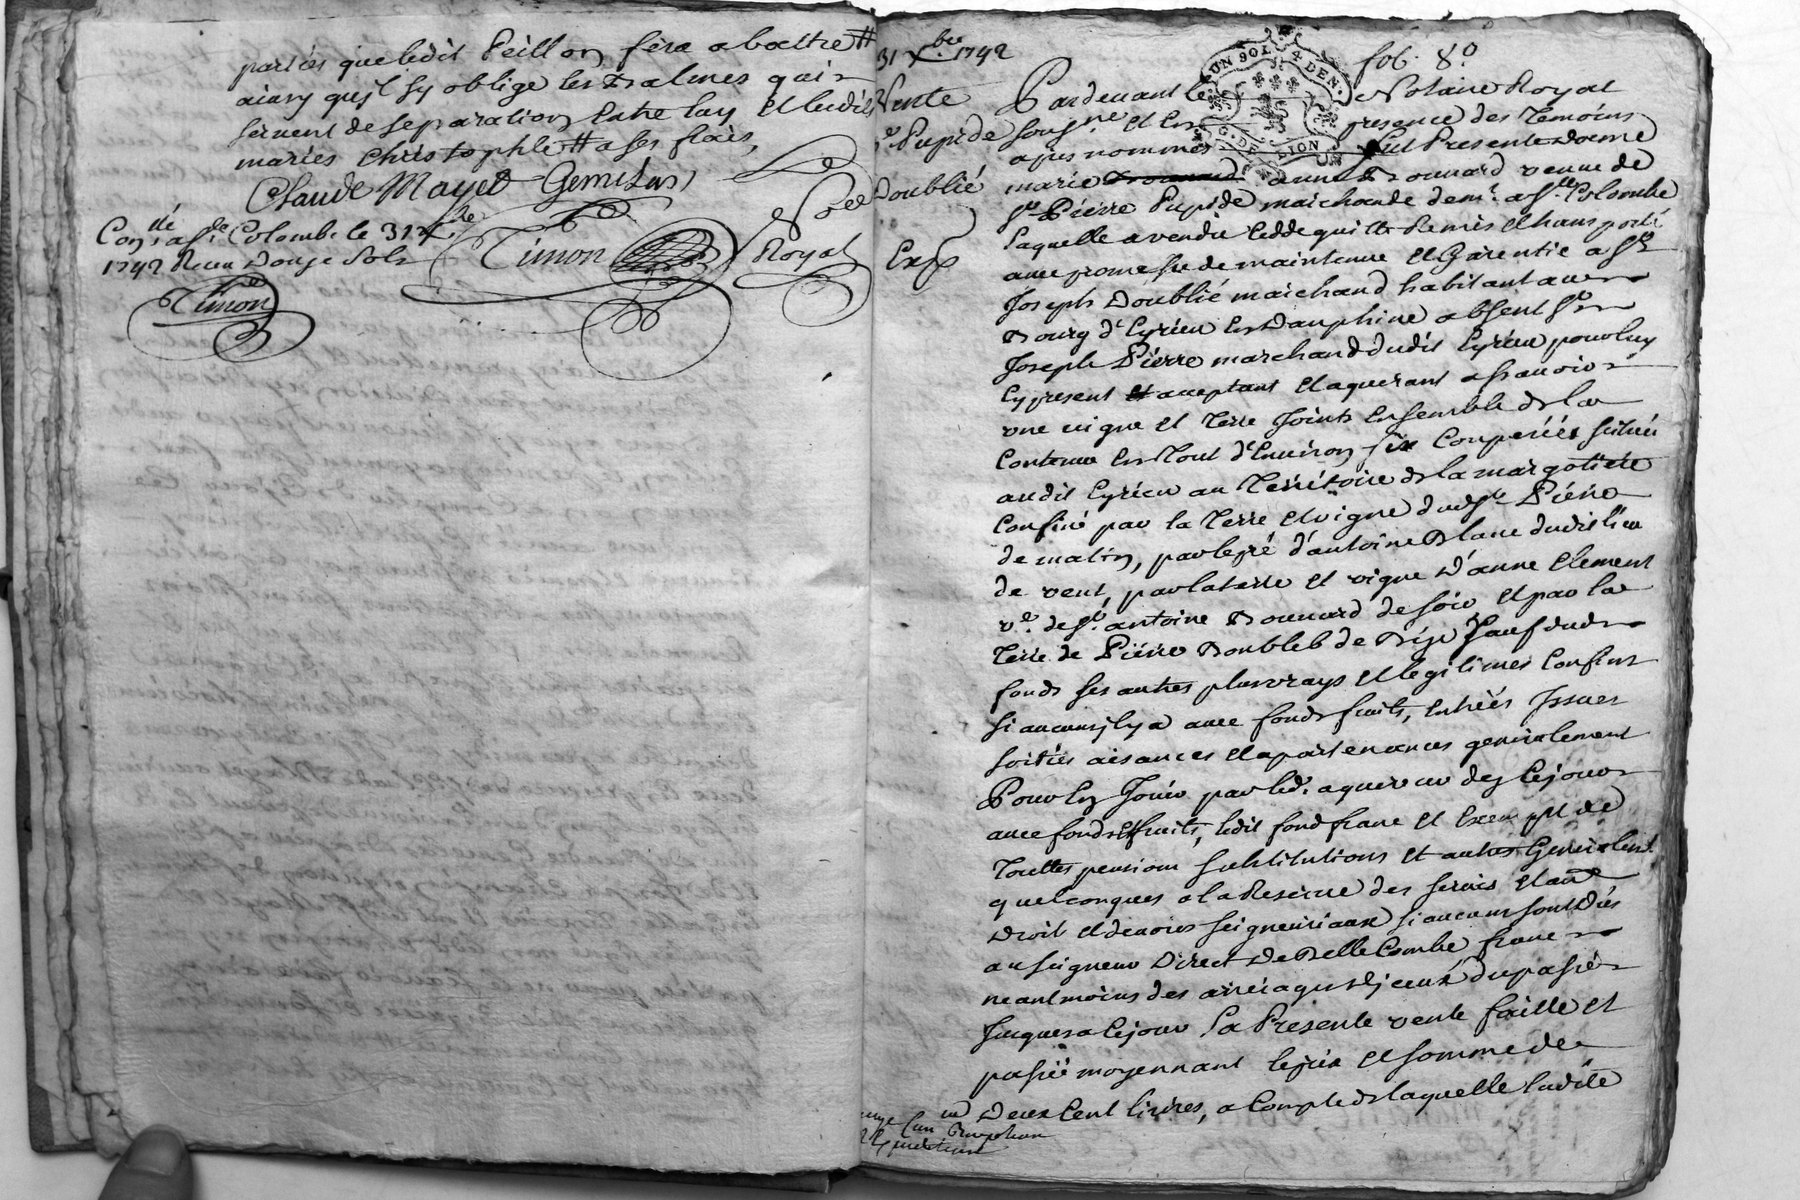 parties que ledit Peillon fera abattre #
ainsy qu'il sy oblige les Balmes qui
servent de separation Entre luy et lesdits
mariés Christophle # a ses frais,
Claude Mayet Gemelas
Timon Nore Royal
Con.lé a s.te Colombe le 31 x.bre
1742 Reçu Douze Sols
Timon
31 X.bre 1742
Vente
Pupide
Doublié
Exp
fol. 8.o
UN SOL 4 DEN.
G. DE LION
Pardevant le Notaire Royal
sousg.né et En presence des Temoins
apres nommés fut Presente Dame
marie anne Bonnard veuve de
s.r Pierre Pupide marchande dem.t a s.te Colombe
Laquelle a vendu cedde quitte Remis et transporté
avec promesse de maintenue et Garentie a s.r
Joseph Doublié marchand habitant au
Bourg d'Eyrieu En Dauphiné absent s.r
Joseph Pierre marchand dudit Eyrieu pour luy
Cy present et acceptant et aquerant a sçavoir
une vigne et Terre Joints Ensemble de la
Contenue En Tout d'Environ six Couperées situés
audit Eyrieu au Territoire de la margotiere
Confiné par la Terre et vigne dud. s.r Pierre
de matin, par le pré d'antoine Blanc dudit lieu
de vent, par la terre et vigne d'anne Clement
v.e de s.r antoine Bonnard de soir et par la
Terre de Pierre Doubleb de Bize sauf dud.
fonds ses autres plus vrays et legitimes Confins
si aucuns il y a avec fonds fruits, entrées Issues
sorties aisances et apartenances generalement
Pour En Jouir par led. aquereur dez Cejour
avec fonds et fruits, ledit fond franc et Exempt de
Touttes pensions substitutions et autres Generalem.t
quelconques a la Reserve des servis et au.e
Droit et devoirs seigneuriaux si aucuns sont Dûs
au seigneur Direct de Bellecombe, franc
neantmoins des arreiages d'jceux du passé
Jusques a Cejour La Presente vente faitte et
passée moyennant le prix et somme de
Deux Cent livres, a Compte de laquelle ladite